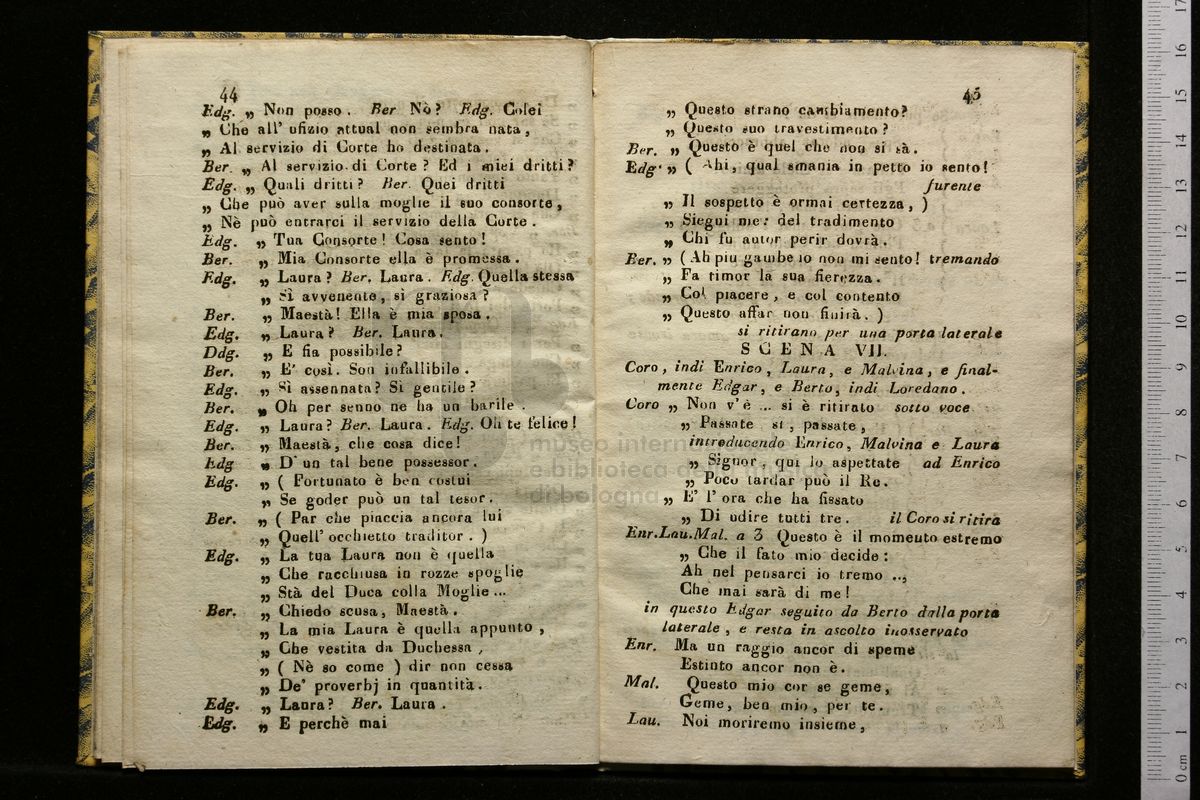 44
Edg. „ Non posso. Ber Nò? Edg. Colei
„ Che all' ufizio attual non sembra nata,
„ Al servizio di Corte ho destinata.
Ber „ Al servizio di Corte? Ed i miei dritti?
Edg. „ Quali dritti? Ber. Quei dritti
„ Che può aver sulla moglie il suo consorte,
„ Nè può entrarci il servizio della Corte.
Edg. „ Tua Consorte! Cosa sento!
Ber. „ Mia Consorte ella è promessa.
Edg. „ Laura? Ber. Laura. Edg. Quella stessa
„ Sì avvenente, si graziosa?
Ber. „ Maestà! Ella è mia sposa.
Edg. „ Laura? Ber. Laura.
Ddg. „ E fia possibile?
Ber. „ E' così. Son infallibile.
Edg. „ Sì assennata? Si gentile?
Ber. „ Oh per senno ne ha un barile.
Edg. „ Laura? Ber. Laura. Edg. Oh te felice!
Ber. „ Maestà, che cosa dice!
Edg „ D' un tal bene possessor.
Edg. „ ( Fortunato è ben costui
„ Se goder può un tal tesor.
Ber. „ ( Par che piaccia ancora lui
„ Quell' occhietto traditor. )
Edg. „ La tua Laura non è quella
„ Che racchiusa in rozze spoglie
„ Stà del Duca colla Moglie...
Ber. „ Chiedo scusa, Maestà.
„ La mia Laura è quella appunto,
„ Che vestita da Duchessa,
„ ( Nè so come ) dir non cessa
„ De' proverbj in quantità.
Edg. „ Laura? Ber. Laura.
Edg. „ E perchè mai
45
„ Questo strano cambiamento?
„ Questo suo travestimento?
Ber. „ Questo è quel che non si sà.
Edg. „ ( Ahi, qual smania in petto io sento!
furente
„ Il sospetto è ormai certezza, )
„ Siegui me: del tradimento
„ Chi fu autor perir dovrà.
Ber. „ ( Ah piu gambe io non mi sento! tremando
„ Fa timor la sua fierezza.
„ Col piacere, e col contento
„ Questo affar non finirà. )
si ritirano per una porta laterale
SCENA VII.
Coro, indi Enrico, Laura, e Malvina, e final-
mente Edgar, e Berto, indi Loredano.
Coro „ Non v'è ... si è ritirato sotto voce
„ Passate sì, passate,
introducendo Enrico, Malvina e Laura
„ Signor, qui lo aspettate ad Enrico
„ Poco tardar può il Re.
„ E' l'ora che ha fissato
„ Di udire tutti tre. il Coro si ritira
Enr. Lau. Mal. a 3 Questo è il momento estremo
„ Che il fato mio decide:
Ah nel pensarci io tremo ..,
Che mai sarà di me!
in questo Edgar seguito da Berto dalla porta
laterale, e resta in ascolto inosservato
Enr. Ma un raggio ancor di speme
Estinto ancor non è.
Mal. Questo mio cor se geme,
Geme, ben mio, per te.
Lau. Noi moriremo insieme,